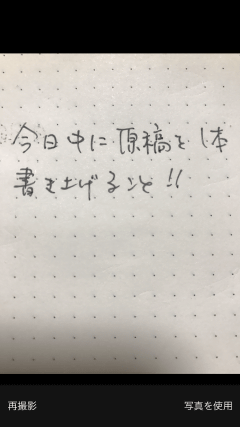 今日中に原稿を1本
書き上げること!!
再撮影
写真を使用